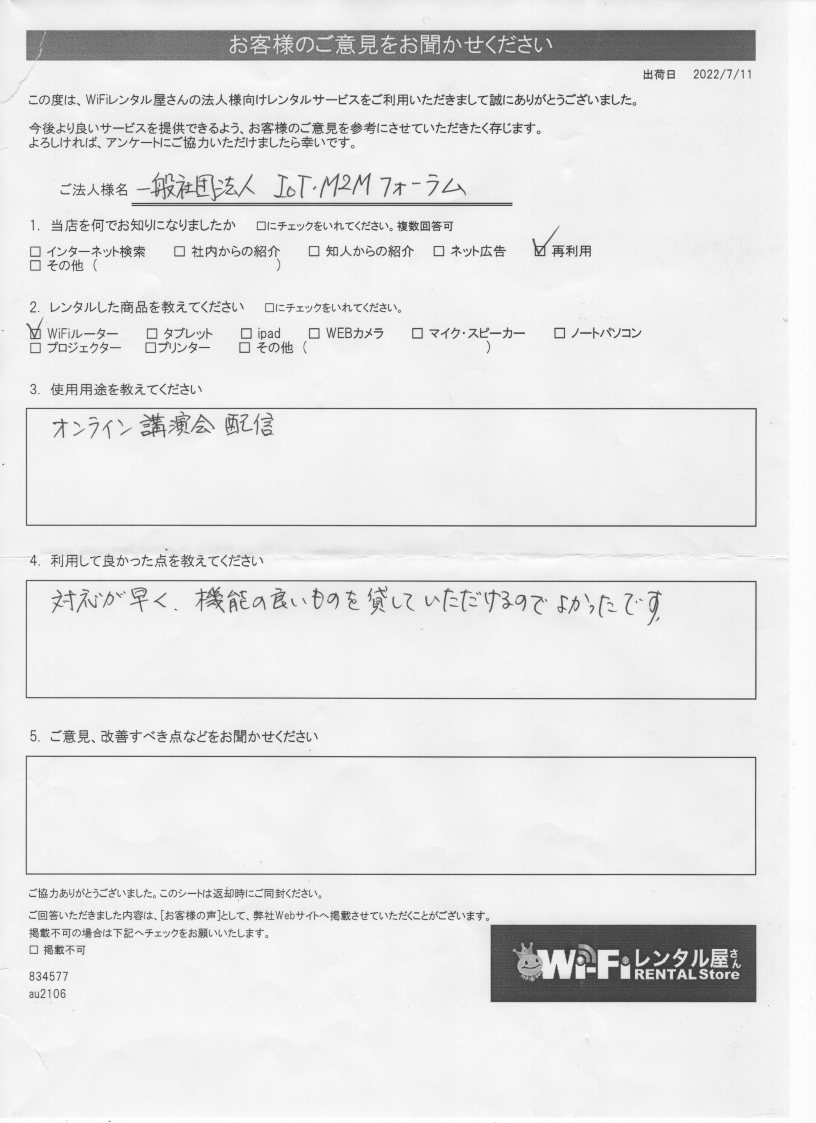 お客様のご意見をお聞かせください
出荷日 2022/7/11
この度は、WiFiレンタル屋さんの法人様向けレンタルサービスをご利用いただきまして誠にありがとうございました。
今後より良いサービスを提供できるよう、お客様のご意見を参考にさせていただきたく存じます。
よろしければ、アンケートにご協力いただけましたら幸いです。
ご法人様名 一般社団法人 IoT・M2Mフォーラム
1. 当店を何でお知りになりましたか □にチェックをいれてください。複数回答可
□ インターネット検索 □ 社内からの紹介 □ 知人からの紹介 □ ネット広告 ☑ 再利用
□ その他 ( )
2. レンタルした商品を教えてください □にチェックをいれてください。
☑ WiFiルーター □ タブレット □ ipad □ WEBカメラ □ マイク・スピーカー □ ノートパソコン
□ プロジェクター □プリンター □ その他 ( )
3. 使用用途を教えてください
オンライン講演会 配信
4. 利用して良かった点を教えてください
対応が早く、機能の良いものを貸していただけるのでよかったです。
5. ご意見、改善すべき点などをお聞かせください
ご協力ありがとうございました。このシートは返却時にご同封ください。
ご回答いただきました内容は、[お客様の声]として、弊社Webサイトへ掲載させていただくことがございます。
掲載不可の場合は下記へチェックをお願いいたします。
□ 掲載不可
834577
au2106
Wi-Fiレンタル屋さん
RENTAL Store